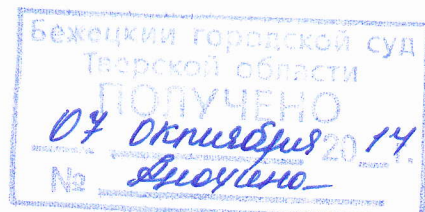 Бежецкий городской суд
Тверской области
ПОЛУЧЕНО
07 октября 2014 г.
№